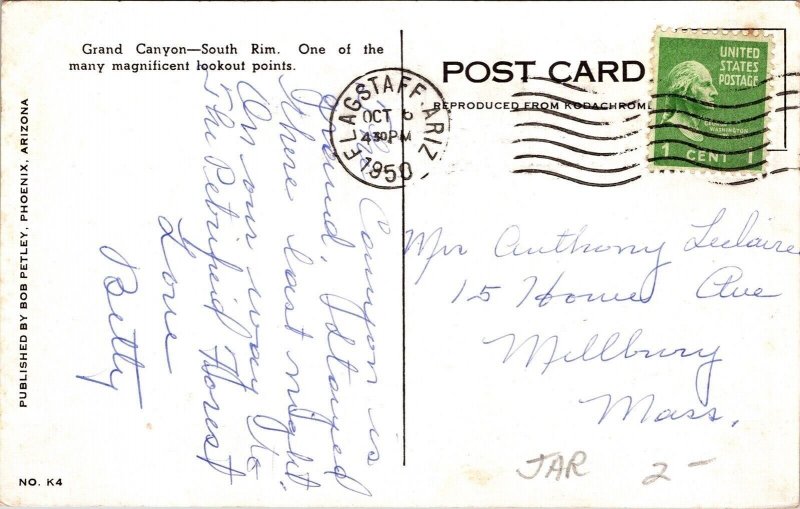 Grand Canyon—South Rim. One of the
many magnificent lookout points.
PUBLISHED BY BOB PETLEY, PHOENIX, ARIZONA
NO. K4
POST CARD
REPRODUCED FROM KODACHROME
FLAGSTAFF, ARIZ
OCT 6
4 30 PM
1950
UNITED
STATES
POSTAGE
GEORGE
WASHINGTON
1 CENT 1
Canyon is
grand. Stayed
there last night.
On our way to
The Petrified Forest
Love
Betty
Mrs Anthony Leclaire
15 Howe Ave
Millbury
Mass.
JAR 2-